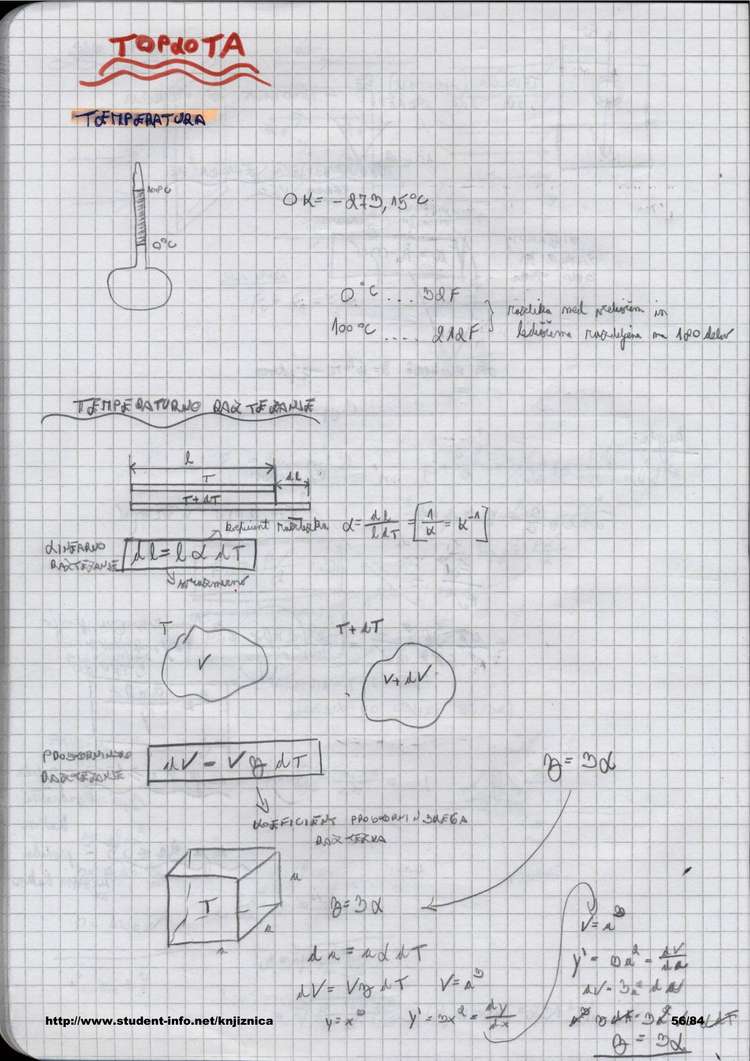 TOPLOTA
TEMPERATURA
100°C
0°C
0K = -273,15°C
0°C .... 32F
100°C .... 212F
razlika med vreliščem in
lediščema razdeljena na 180 delov
TEMPERATURNO RAZTEZANJE
l
T
dl
T+dT
α = dl/ldT = [1/K = K⁻¹]
LINEARNO
RAZTEZANJE
dl = l α dT
T
V
T+dT
V+dV
PROSTORNINSKO
RAZTEZANJE
dV = V β dT
β = 3α
KOEFICIENT PROSTORNINSKEGA
RAZTEZKA
T
a
a
a
β = 3α
da = a α dT
dV = V β dT V = a³
y = x³ y' = 3x² = dy/dx
V = a³
y' = 3a² = dV/da
dV = 3a² da
β = 3α
http://www.student-info.net/knjiznica
56/84